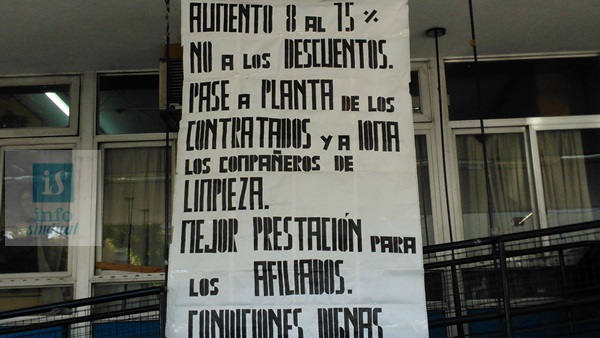 AUMENTO 8 AL 15 %
NO A LOS DESCUENTOS.
PASE A PLANTA DE LOS
CONTRATADOS Y A IOMA
LOS COMPAÑEROS DE
LIMPIEZA.
MEJOR PRESTACIÓN PARA
LOS AFILIADOS.
CONDICIONES DIGNAS
is
info
sindical